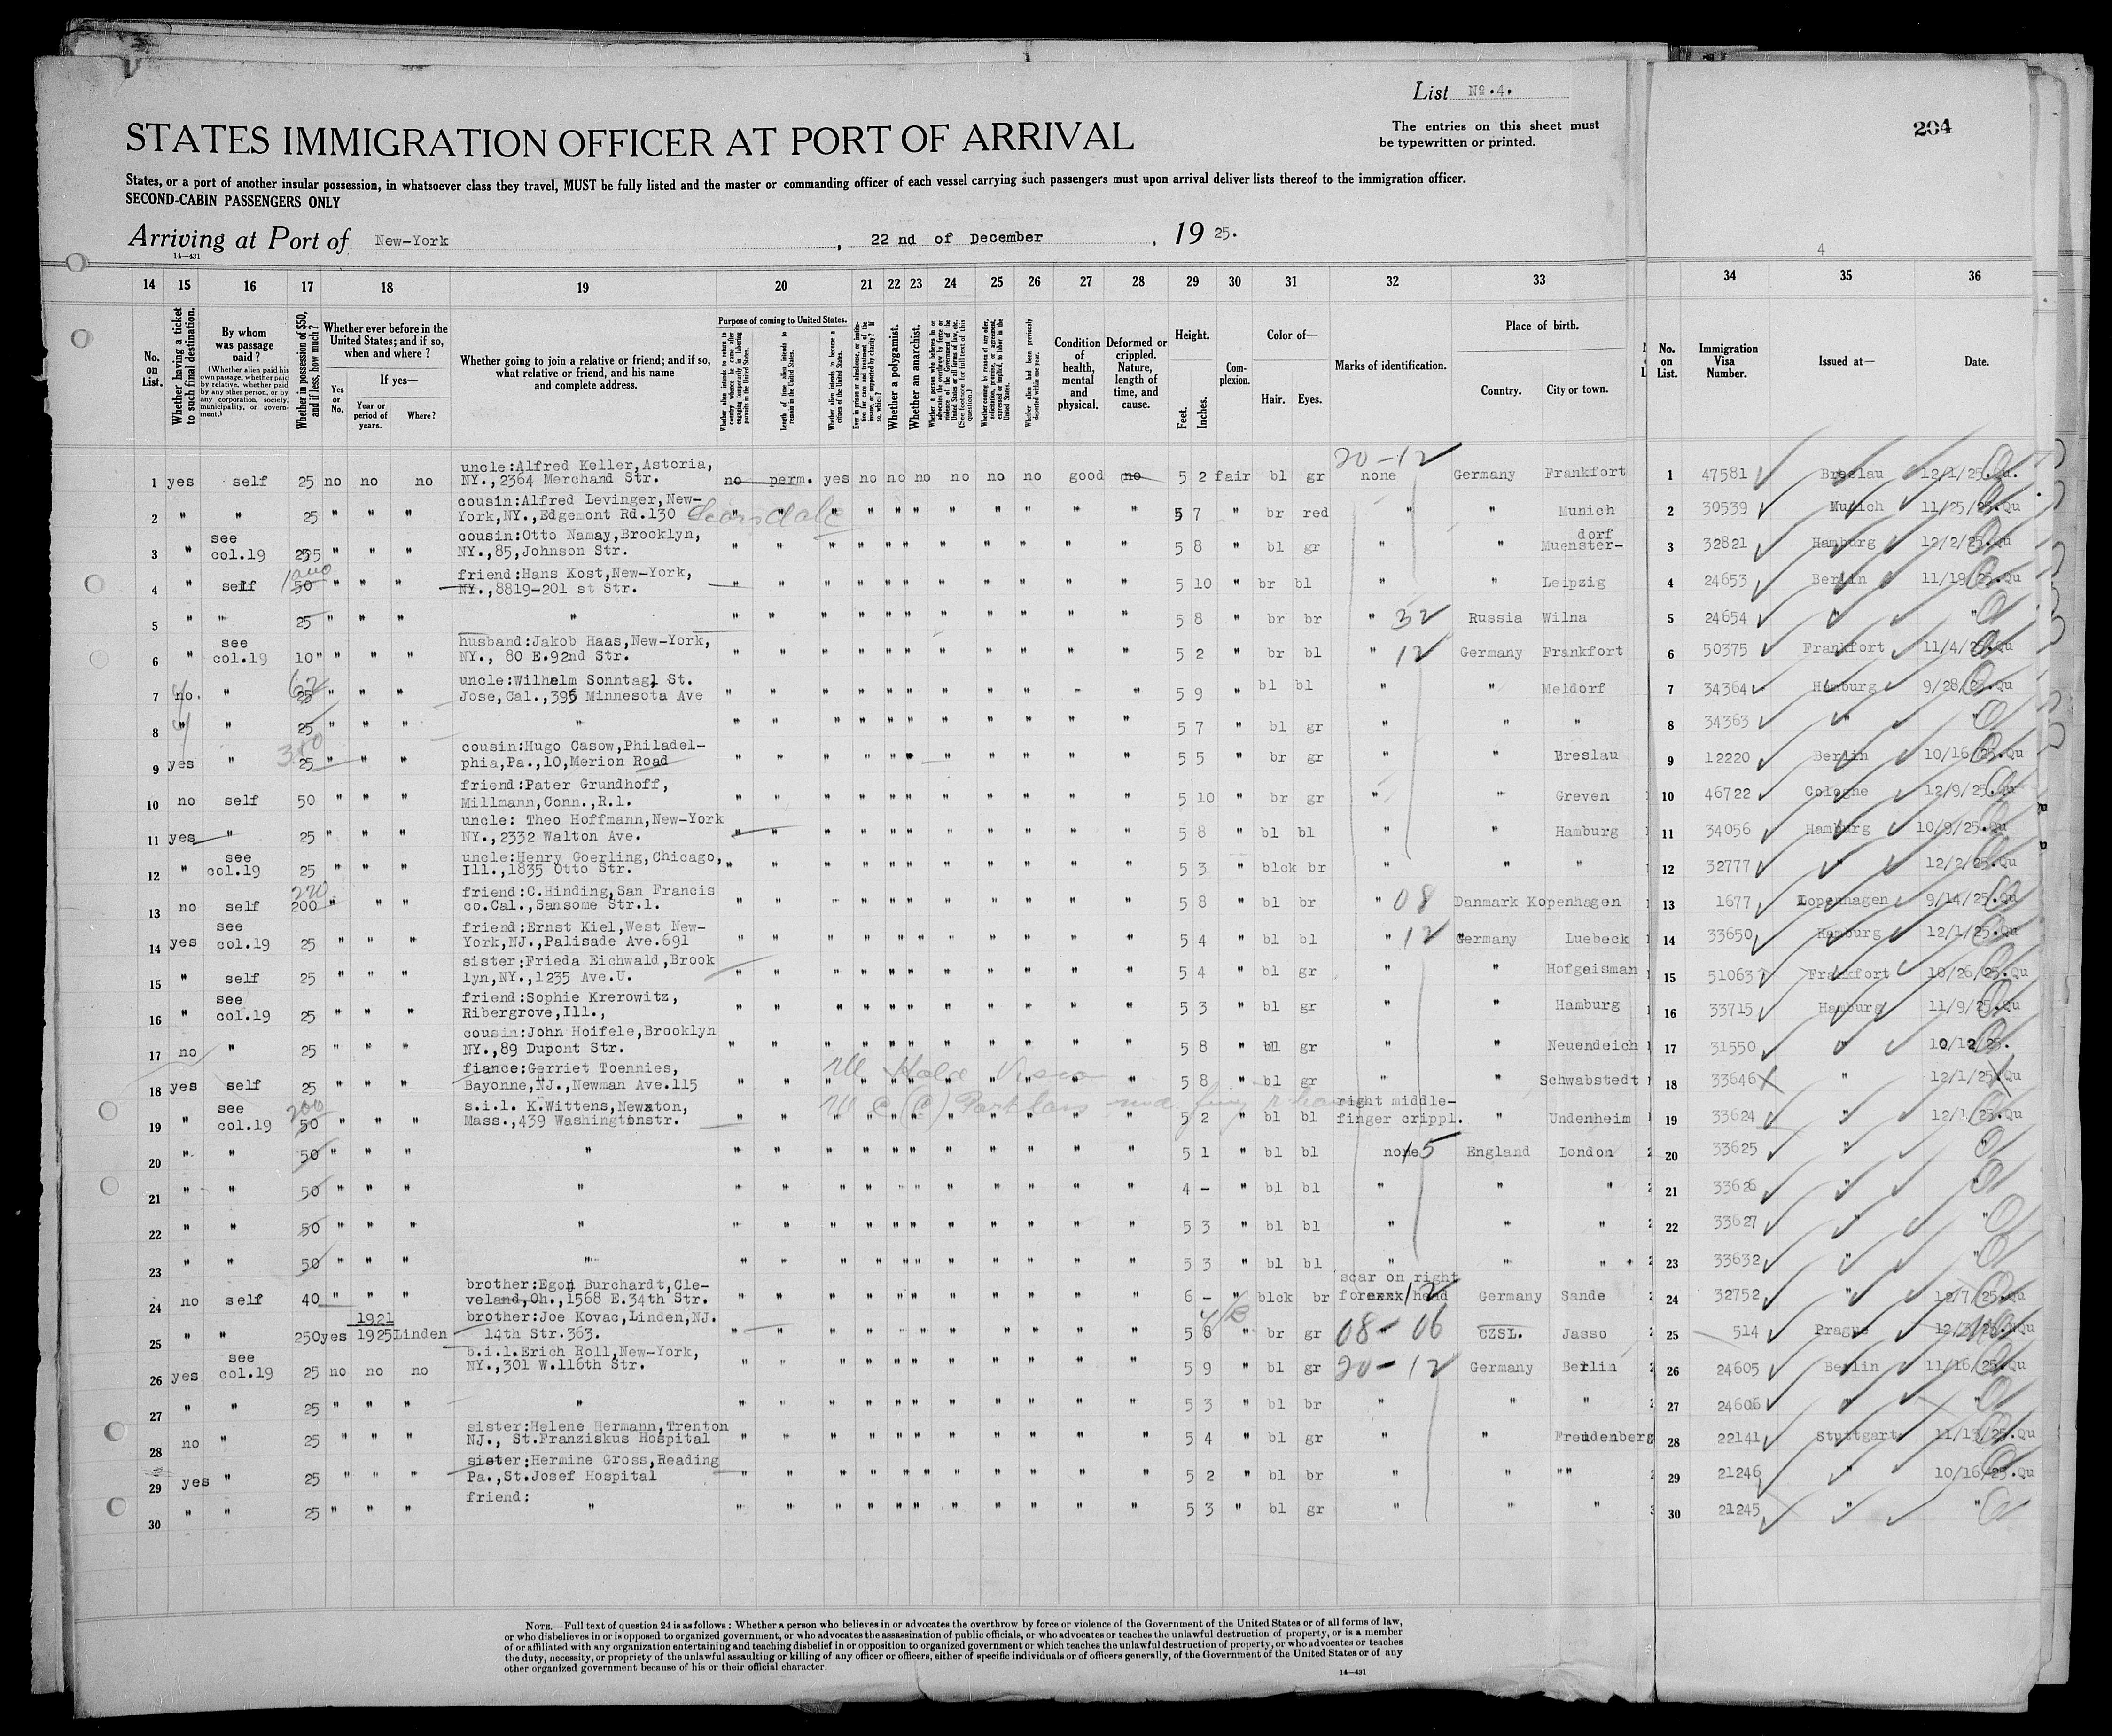 List No. 4.
204
The entries on this sheet must
be typewritten or printed.
STATES IMMIGRATION OFFICER AT PORT OF ARRIVAL
States, or a port of another insular possession, in whatsoever class they travel, MUST be fully listed and the master or commanding officer of each vessel carrying such passengers must upon arrival deliver lists thereof to the immigration officer.
SECOND-CABIN PASSENGERS ONLY
Arriving at Port of New-York, 22 nd of December, 19 25.
14—431
4
14 15 16 17 18 19 20 21 22 23 24 25 26 27 28 29 30 31 32 33 34 35 36
No. on List.
Whether having a ticket to such final destination.
By whom was passage paid?
(Whether alien paid his own passage, whether paid by relative, whether paid by any other person, or by any corporation, society, municipality, or government.)
Whether in possession of $50, and if less, how much?
Whether ever before in the United States; and if so, when and where?
Yes or No.
If yes—
Year or period of years.
Where?
Whether going to join a relative or friend; and if so, what relative or friend, and his name and complete address.
Purpose of coming to United States.
Whether alien intends to return to country whence he came after engaging temporarily in laboring pursuits in the United States.
Length of time alien intends to remain in the United States.
Whether alien intends to become a citizen of the United States.
Ever in prison or almshouse, or institution for care and treatment of the insane, or supported by charity? If so, which?
Whether a polygamist.
Whether an anarchist.
Whether a person who believes in or advocates the overthrow by force or violence of the Government of the United States or all forms of law, etc. (See footnote for full text of this question.)
Whether coming by reason of any offer, solicitation, promise, or agreement, expressed or implied, to labor in the United States.
Whether alien had been previously deported within one year.
Condition of health, mental and physical.
Deformed or crippled. Nature, length of time, and cause.
Height.
Feet. Inches.
Complexion.
Color of—
Hair. Eyes.
Marks of identification.
Place of birth.
Country. City or town.
No. on List.
Immigration Visa Number.
Issued at—
Date.
20-12
1 yes self 25 no no no uncle:Alfred Keller,Astoria, NY.,2364 Merchand Str. no perm. yes no no no no no no good no 5 2 fair bl gr none Germany Frankfort 1 47581 Breslau 12/1/25.Qu.
2 " " 25 " " " cousin:Alfred Levinger,New-York,NY.,Edgemont Rd.130 Scarsdale " " " " " " " " " " " 5 7 " br red " " Munich 2 30539 Munich 11/25/25.Qu
3 " see col.19 255 " " " cousin:Otto Namay,Brooklyn, NY.,85,Johnson Str. " " " " " " " " " " " 5 8 " bl gr " " Muensterdorf 3 32821 Hamburg 12/2/25.Qu
4 " self 50 " " " friend:Hans Kost,New-York, NY.,8819-201 st Str. " " " " " " " " " " " 5 10 " br bl " " Leipzig 4 24653 Berlin 11/19/25.Qu
5 " " 25 " " " " " " " " " " " " " " " 5 8 " br br " 32 Russia Wilna 5 24654 " "
6 " see col.19 10 " " " husband:Jakob Haas,New-York, NY., 80 E.92nd Str. " " " " " " " " " " " 5 2 " br bl " 12 Germany Frankfort 6 50375 Frankfort 11/4/25.Qu
7 no. " 25 62 " " " uncle:Wilhelm Sonntag, St. Jose,Cal.,395 Minnesota Ave " " " " " " " " " " " 5 9 " bl bl " " Meldorf 7 34364 Hamburg 9/28/25.Qu
8 " " 25 " " " " " " " " " " " " " " " 5 7 " bl gr " " " 8 34363 " "
9 yes " 25 " " " cousin:Hugo Casow,Philadelphia,Pa.,10,Merion Road " " " " " " " " " " " 5 5 " br gr " " Breslau 9 12220 Berlin 10/16/25.Qu
10 no self 50 " " " friend:Pater Grundhoff, Millmann,Conn.,R.1. " " " " " " " " " " " 5 10 " br gr " " Greven 10 46722 Cologne 12/9/25.Qu
11 yes " 25 " " " uncle: Theo Hoffmann,New-York NY.,2332 Walton Ave. " " " " " " " " " " " 5 8 " bl bl " " Hamburg 11 34056 Hamburg 10/9/25.Qu
12 " see col.19 25 " " " uncle:Henry Goerling,Chicago, Ill.,1835 Otto Str. " " " " " " " " " " " 5 3 " blck br " " " 12 32777 " 12/2/25.Qu
13 no self 200 220 " " " friend:C.Hinding,San Francis co.Cal.,Sansome Str.1. " " " " " " " " " " " 5 8 " bl br " 08 Danmark Kopenhagen 13 1677 Kopenhagen 9/14/25.Qu
14 yes see col.19 25 " " " friend:Ernst Kiel,West New-York,NJ.,Palisade Ave.691 " " " " " " " " " " " 5 4 " bl bl " 12 Germany Luebeck 14 33650 Hamburg 12/1/25.Qu
15 " self 25 " " " sister:Frieda Eichwald,Brook lyn,NY.,1235 Ave.U. " " " " " " " " " " " 5 4 " bl gr " " Hofgeisman 15 51063 Frankfort 10/26/25.Qu
16 " see col.19 25 " " " friend:Sophie Krerowitz, Ribergrove,Ill., " " " " " " " " " " " 5 3 " bl gr " " Hamburg 16 33715 Hamburg 11/9/25.Qu
17 no " 25 " " " cousin:John Hoifele,Brooklyn NY.,89 Dupont Str. " " " " " " " " " " " 5 8 " bl gr " " Neuendeich 17 31550 " 10/12/25.
18 yes self 25 " " " fiance:Gerriet Toennies, Bayonne,NJ.,Newman Ave.115 " " " " " " " " " " " 5 8 " bl gr " " Schwabstedt 18 33646 12/1/25.Qu
19 " see col.19 50 200 " " " s.i.l. K.Wittens,Newton, Mass.,439 Washingtonstr. " " " " " " " " " " " 5 2 " bl bl right middle-finger crippl. " Undenheim 19 33624 " 12/1/25.Qu
20 " " 50 " " " " " " " " " " " " " " " 5 1 " bl bl none 15 England London 20 33625 " "
21 " " 50 " " " " " " " " " " " " " " " 4 - " bl bl " " " 21 33626 " "
22 " " 50 " " " " " " " " " " " " " " " 5 3 " bl bl " " " 22 33627 " "
23 " " 50 " " " " " " " " " " " " " " " 5 3 " bl bl " " " 23 33632 " "
24 no self 40 " " " brother:Egon Burchardt,Cleveland,Oh.,1568 E.34th Str. " " " " " " " " " " " 6 - " blck br scar on right forehead 12 Germany Sande 24 32752 " 12/7/25.Qu
25 " " 250 yes 1921 1925 Linden brother:Joe Kovac,Linden,NJ. 14th Str.363. " " " " " " " " " " " 5 8 " br gr 08-06 CZSL. Jasso 25 514 Prague
26 yes see col.19 25 no no no b.i.l.Erich Roll,New-York, NY.,301 W.116th Str. " " " " " " " " " " " 5 9 " bl gr 20-12 Germany Berlin 26 24605 Berlin 11/16/25.Qu
27 " " 25 " " " " " " " " " " " " " " " 5 3 " bl br " " " 27 24606 " "
28 no " 25 " " " sister:Helene Hermann,Trenton NJ., St.Franziskus Hospital " " " " " " " " " " " 5 4 " bl gr " " Freudenberg 28 22141 Stuttgart 11/13/25.Qu
29 yes " 25 " " " sister:Hermine Gross,Reading Pa.,St.Josef Hospital " " " " " " " " " " " 5 2 " bl br " " " " 29 21246 " 10/16/25.Qu
30 " " 25 " " " friend: " " " " " " " " " " " " 5 3 " bl gr " " " 30 21245 " "
NOTE.—Full text of question 24 is as follows: Whether a person who believes in or advocates the overthrow by force or violence of the Government of the United States or of all forms of law,
or who disbelieves in or is opposed to organized government, or who advocates the assassination of public officials, or who advocates or teaches the unlawful destruction of property, or is a member
of or affiliated with any organization entertaining and teaching disbelief in or opposition to organized government or which teaches the unlawful destruction of property, or who advocates or teaches
the duty, necessity, or propriety of the unlawful assaulting or killing of any officer or officers, either of specific individuals or of officers generally, of the Government of the United States or of any
other organized government because of his or their official character.
14—431